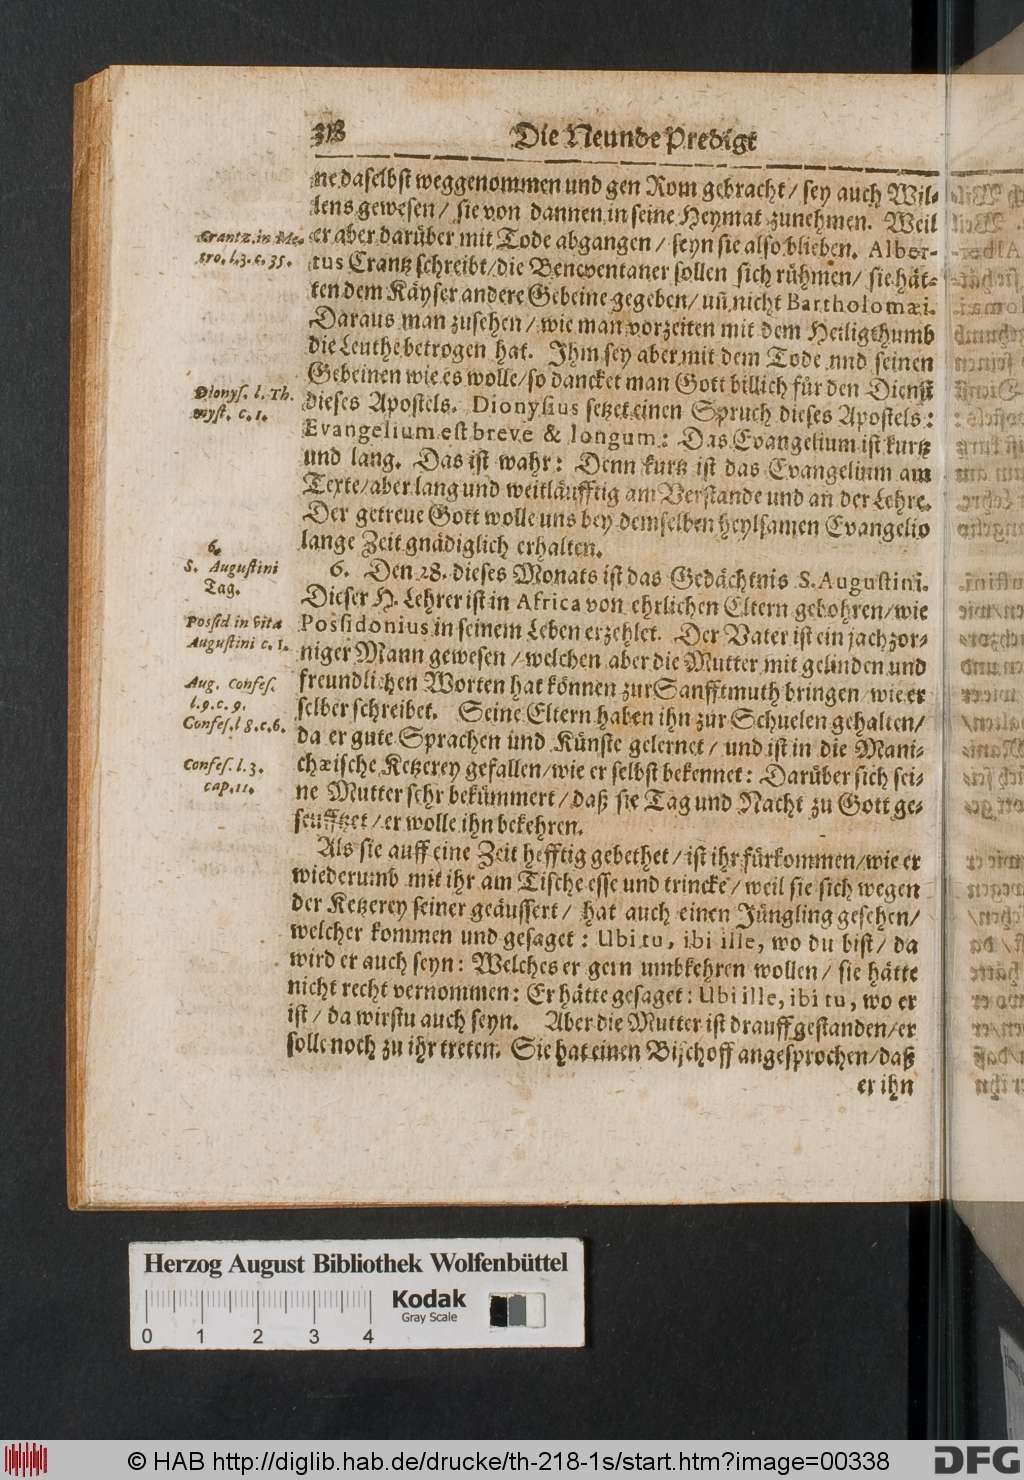 318 Die Neunde Predigt
ne daselbst weggenommen und gen Rom gebracht / sey auch Wil-
lens gewesen / sie von dannen in seine Heymat zunehmen. Weil
er aber darüber mit Tode abgangen / seyn sie also blieben. Alber-
Crantz. in Me-
tro. l. 3. c. 35.
tus Crantz schreibt / die Beneventaner sollen sich rühmen / sie hät-
ten dem Käyser andere Gebeine gegeben / uñ nicht Bartholomæi.
Daraus man zusehen / wie man vorzeiten mit dem Heiligthumb
die Leuthe betrogen hat. Ihm sey aber mit dem Tode und seinen
Gebeinen wie es wolle / so dancket man Gott billich für den Dienst
Dionys. l. Th.
myst. c. 1.
dieses Apostels. Dionysius setzet einen Spruch dieses Apostels:
Evangelium est breve & longum: Das Evangelium ist kurtz
und lang. Das ist wahr: Denn kurtz ist das Evangelium am
Texte / aber lang und weitläufftig am Verstande und an der Lehre.
Der getreue Gott wolle uns bey demselben heylsamen Evangelio
lange Zeit gnädiglich erhalten.
6.
S. Augustini
Tag.
6. Den 28. dieses Monats ist das Gedächtnis S. Augustini.
Dieser H. Lehrer ist in Africa von ehrlichen Eltern gebohren / wie
Possid in vita
Augustini c. 1.
Possidonius in seinem Leben erzehlet. Der Vater ist ein jachzor-
niger Mann gewesen / welchen aber die Mutter mit gelinden und
Aug. Confes.
l. 9. c. 9.
freundlichen Worten hat können zur Sanfftmuth bringen / wie er
Confes. l 8. c. 6.
selber schreibet. Seine Eltern haben ihn zur Schuelen gehalten /
da er gute Sprachen und Künste gelernet / und ist in die Mani-
Confes. l. 3.
cap. 11.
chæische Ketzerey gefallen / wie er selbst bekennet: Darüber sich sei-
ne Mutter sehr bekümmert / daß sie Tag und Nacht zu Gott ge-
seufftzet / er wolle ihn bekehren.
Als sie auff eine Zeit hefftig gebethet / ist ihr fürkommen / wie er
wiederumb mit ihr am Tische esse und trincke / weil sie sich wegen
der Ketzerey seiner geäussert / hat auch einen Jüngling gesehen /
welcher kommen und gesaget: Ubi tu, ibi ille, wo du bist / da
wird er auch seyn: Welches er gern umbkehren wollen / sie hätte
nicht recht vernommen: Er hätte gesaget: Ubi ille, ibi tu, wo er
ist / da wirstu auch seyn. Aber die Mutter ist drauff gestanden / er
solle noch zu ihr treten. Sie hat einen Bischoff angesprochen / daß
er ihn
Herzog August Bibliothek Wolfenbüttel
Kodak
Gray Scale
0 1 2 3 4
© HAB http://diglib.hab.de/drucke/th-218-1s/start.htm?image=00338
DFG